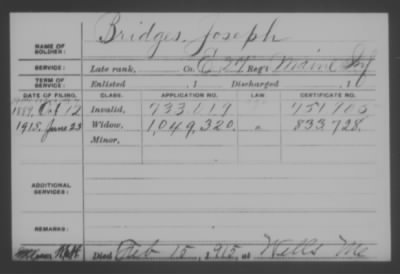 Bridges, Joseph
NAME OF SOLDIER:
SERVICE: Late rank, Co. C, 27 Reg't Maine Inf
TERM OF SERVICE: Enlisted , 1 Discharged , 1
DATE OF FILING. CLASS. APPLICATION NO. LAW. CERTIFICATE NO.
1889, Oct 12 Invalid,
1915, June 23 Widow, 1,049,320. " 833,728.
Minor,
ADDITIONAL SERVICES:
REMARKS:
Died Feb 15, 1915, at Wells Me